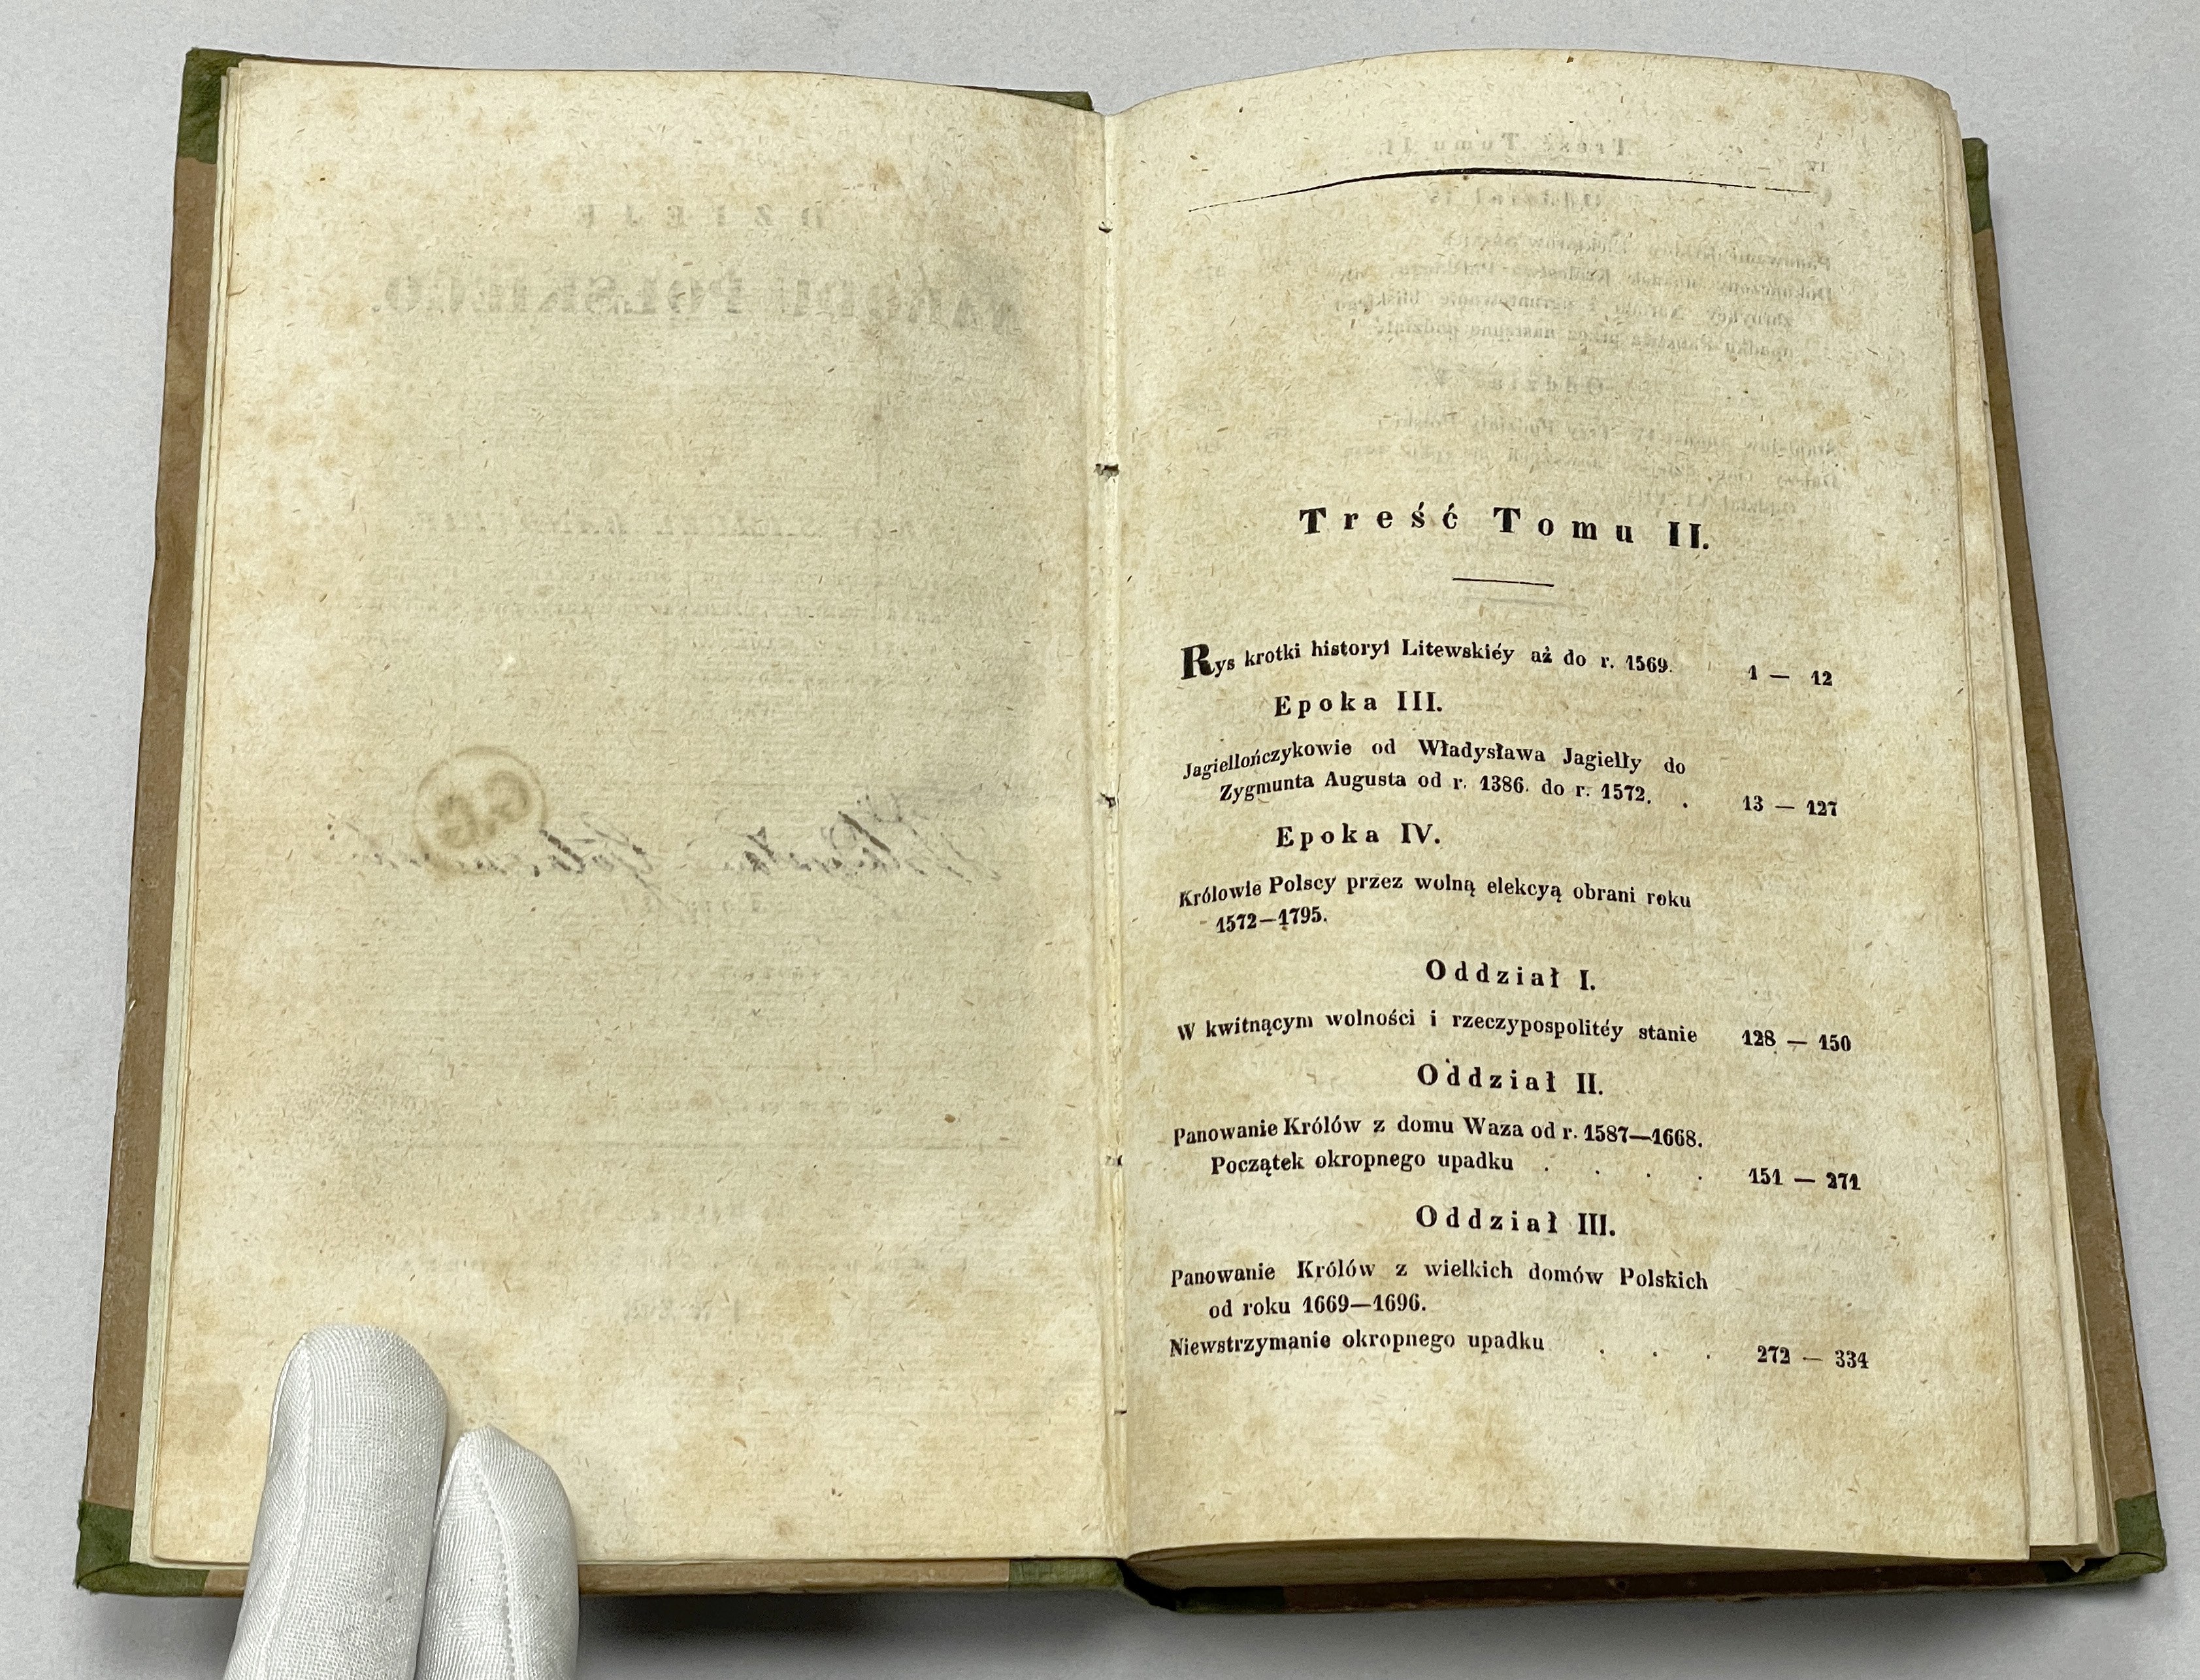 Treść Tomu II.
Rys krotki historyi Litewskiéy aż do r. 1569. 1 — 12
Epoka III.
Jagiellończykowie od Władysława Jagiełły do
Zygmunta Augusta od r. 1386. do r. 1572. . 13 — 127
Epoka IV.
Królowie Polscy przez wolną elekcyą obrani roku
1572—1795.
Oddział I.
W kwitnącym wolności i rzeczypospolitéy stanie 128 — 150
Oddział II.
Panowanie Królów z domu Waza od r. 1587—1668.
Początek okropnego upadku . . . . 151 — 271
Oddział III.
Panowanie Królów z wielkich domów Polskich
od roku 1669—1696.
Niewstrzymanie okropnego upadku . . . 272 — 334